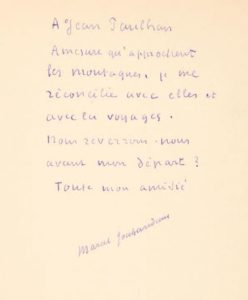 A Jean Paulhan
A mesure qu'approchent
les montagnes, je me
réconcilie avec elles et
avec les voyages.
Nous reverrons-nous
avant mon départ ?
Toute mon amitié
Marcel Jouhandeau